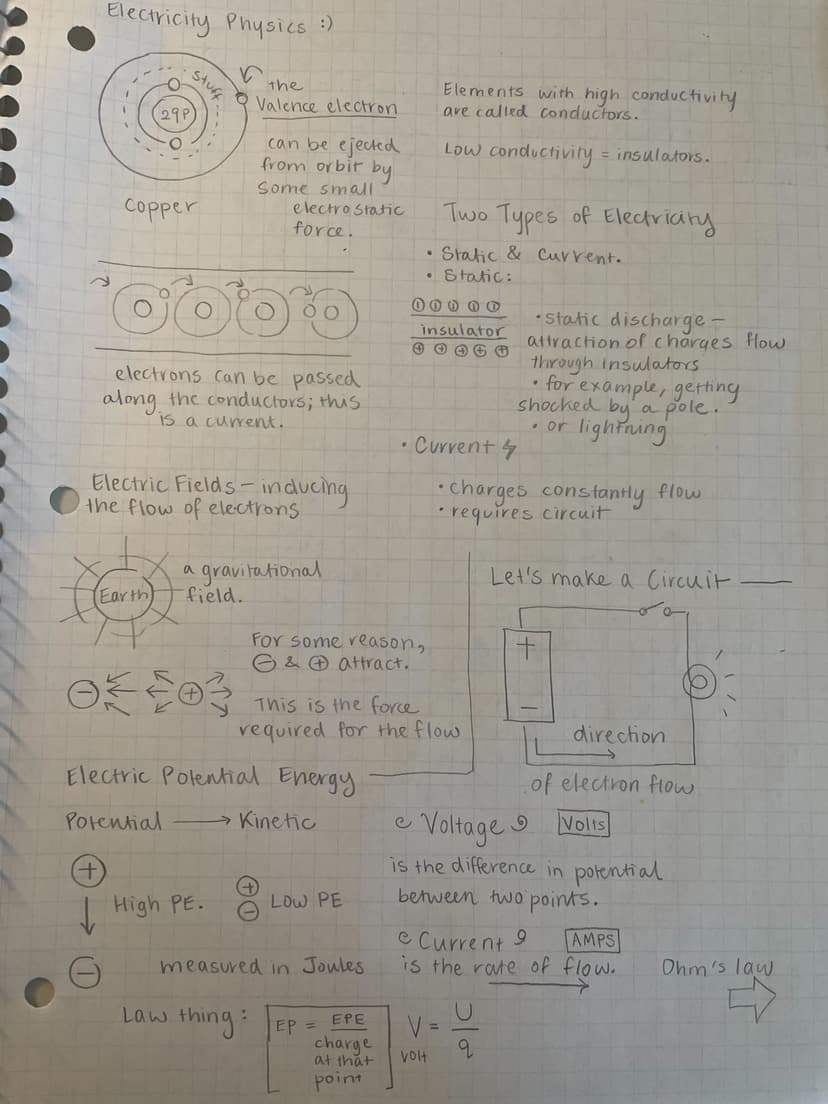 Electricity Physics :)
Stuff
29P
the
Valence electron
can be ejected
from orbit by
some small
electrostatic
force.
copper
electrons can be passed
along the conductors; this
is a current.
Electric Fields - inducing
the flow of electrons
Earth
a gravitational
field.
For some reason,
⊖ & ⊕ attract.
⊖ ⊕
This is the force
required for the flow
Elements with high conductivity
are called conductors.
Low conductivity = insulators.
Two Types of Electricity
• Static & Current.
• Static:
insulator
⊕ ⊕ ⊕ ⊕ ⊕
• static discharge -
attraction of charges flow
through insulators
• for example, getting
shocked by a pole.
• or lightning
• Current
• charges constantly flow
• requires circuit
Let's make a Circuit
+
-
direction
of electron flow
Electric Potential Energy
Potential → Kinetic
⊕
↓ High PE.
⊖
⊕
⊖ Low PE
measured in Joules
Voltage Volts
is the difference in potential
between two points.
Current AMPS
is the rate of flow.
Ohm's law
Law thing:
EP = EPE
charge
at that
point
V = U
q
VOLT